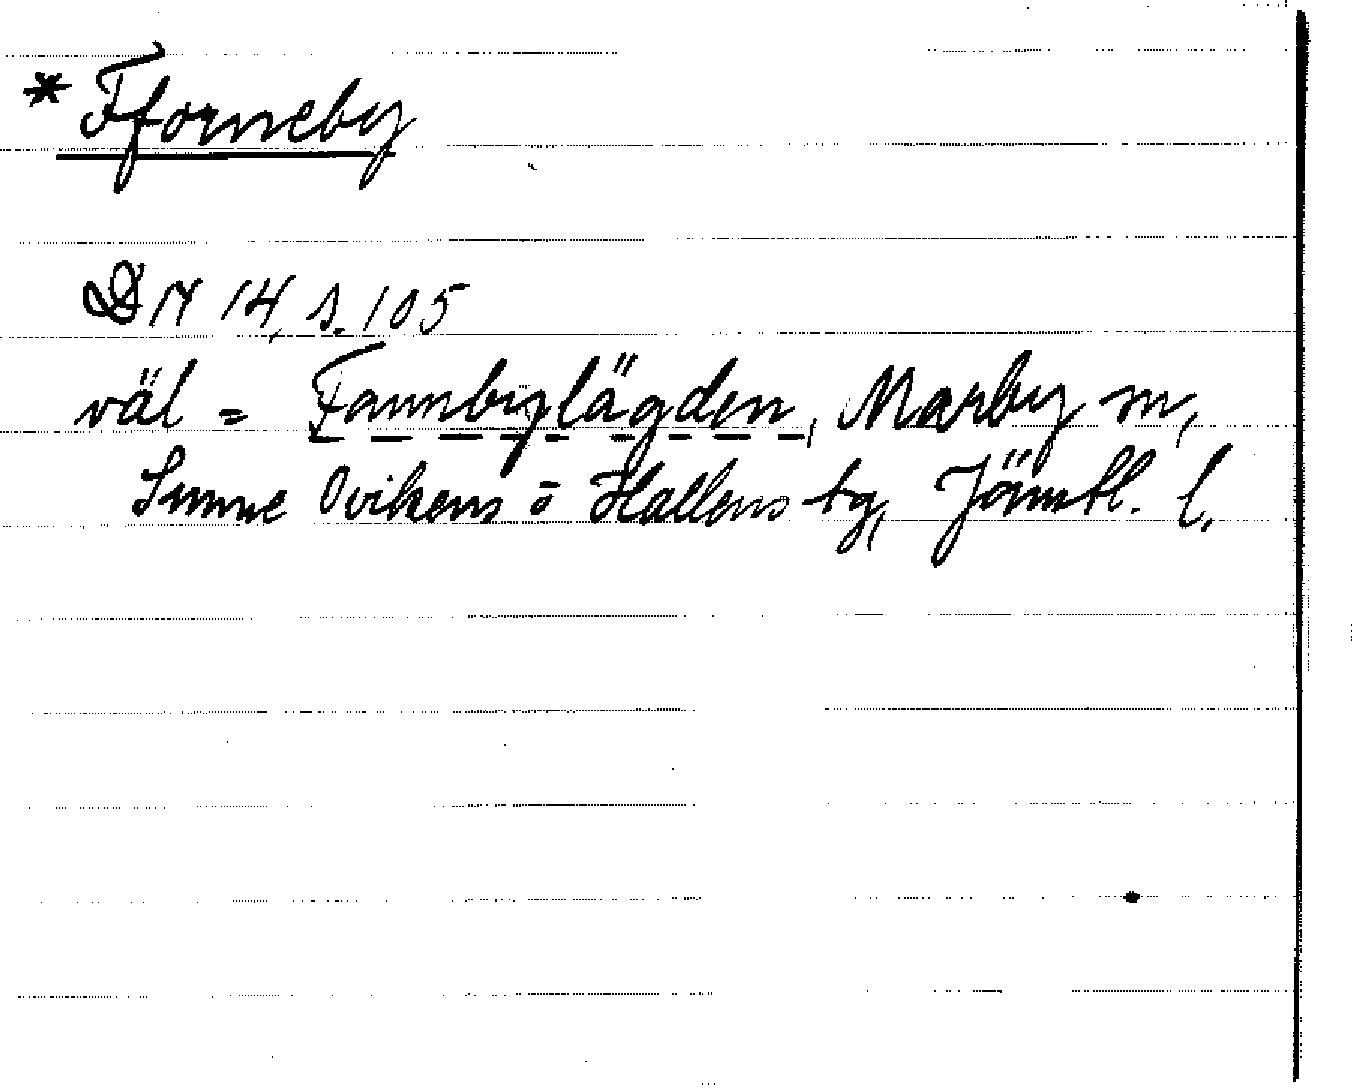 * Fforneby
DN 14, s. 105
väl = Fannbylägden, Marby sn,
Sunne Ovikens o Hallens tg, Jämtl. l.